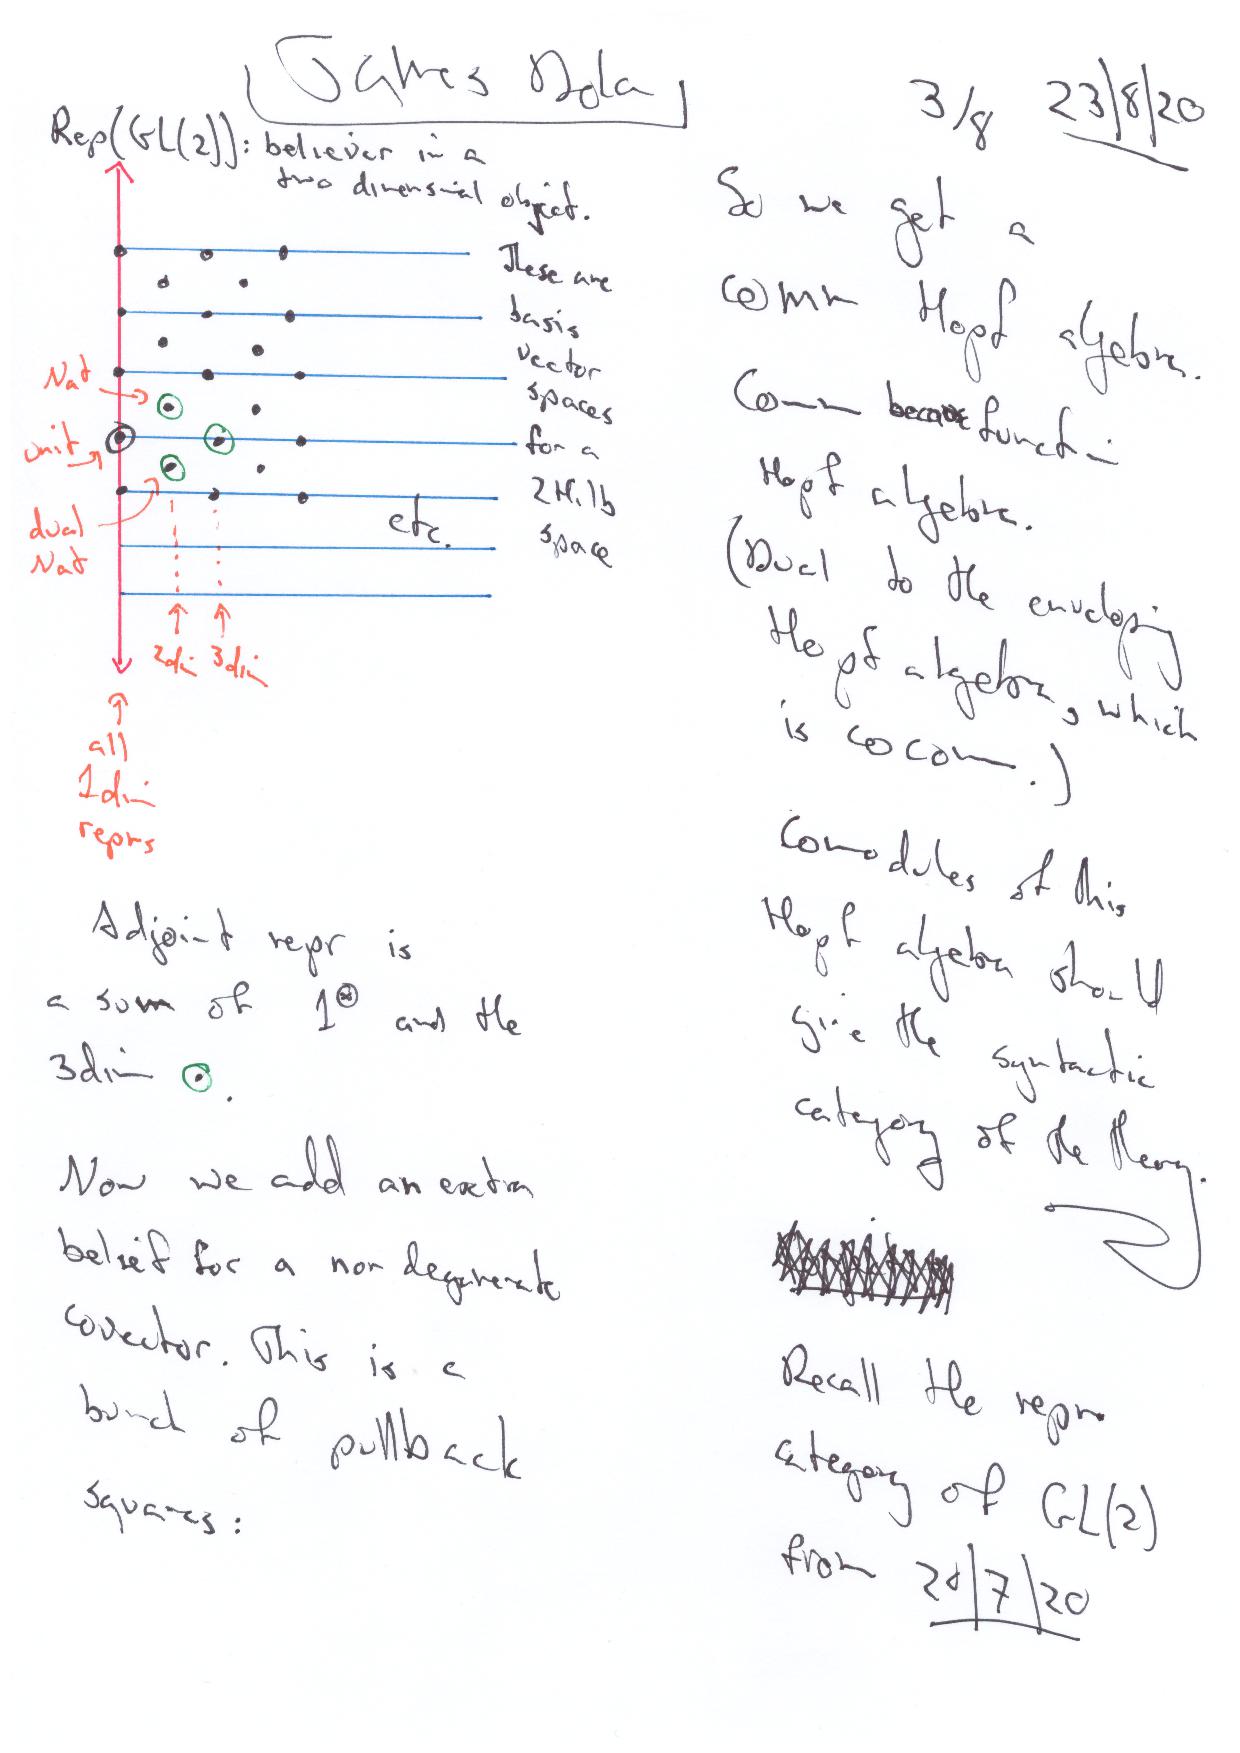 James Dola
3/8 23/8/20
Rep(GL(2)): believer in a
two dimensional object.
These are
basis
vector
spaces
for a
2Hilb
space
Nat
unit
dual
Nat
etc.
2dim 3dim
all
1dim
reprs
Adjoint repr is
a sum of 1⊗ and the
3dim ⊙.
Now we add an extra
belief for a non degenerate
covector. This is a
bunch of pullback
squares:
So we get a
comm Hopf algebra.
Comm because function
Hopf algebra.
(Dual to the enveloping
Hopf algebra, which
is cocomm.)
Comodules of this
Hopf algebra should
give the syntactic
category of the theory.
Recall the repr
category of GL(2)
from /7/20